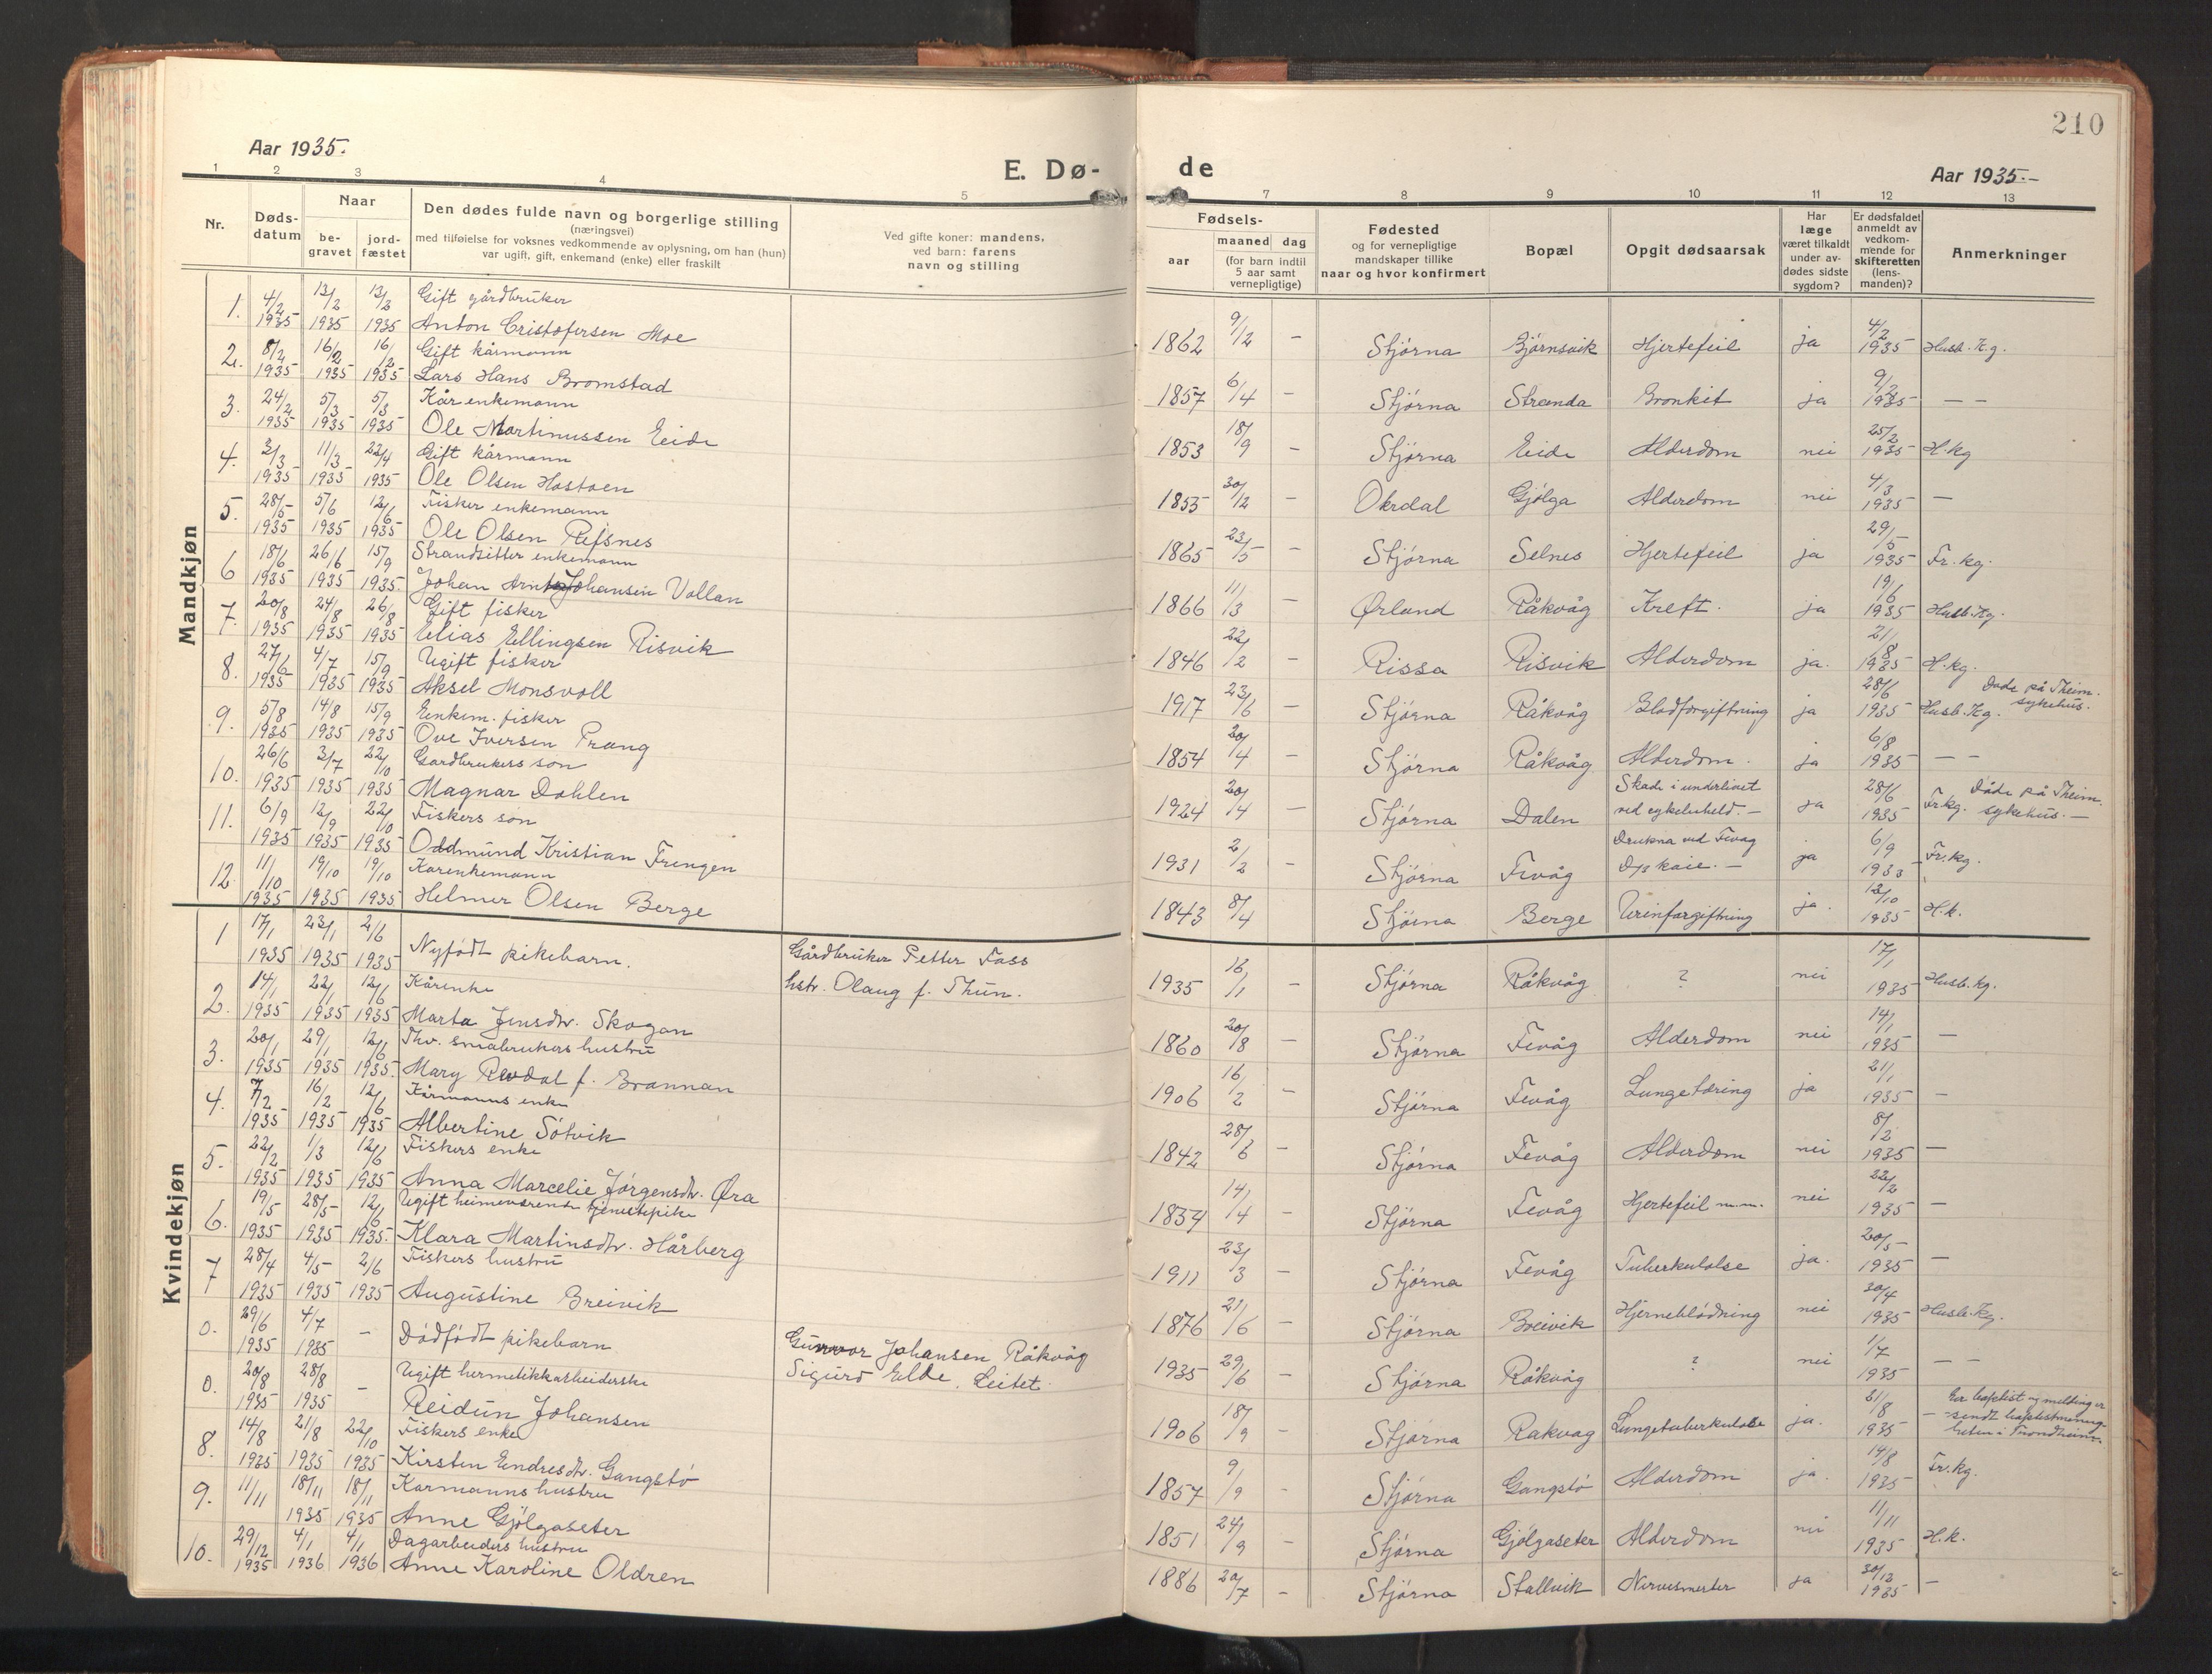 210
Aar 1935.
E. Dø-
de
Aar 1935.-
1 2 3 4 5
7 8 9 10 11 12 13
Nr.
Døds-
datum
Naar
be-
gravet
jord-
fæstet
Den dødes fulde navn og borgerlige stilling
(næringsvei)
med tilføielse for voksnes vedkommende av oplysning, om han (hun)
var ugift, gift, enkemand (enke) eller fraskilt
Ved gifte koner: mandens,
ved barn: farens
navn og stilling
Fødsels-
aar
maaned dag
(for barn indtil
5 aar samt
vernepligtige)
Fødested
og for vernepligtige
mandskaper tillike
naar og hvor konfirmert
Bopæl
Opgit dødsaarsak
Har
læge
været tilkaldt
under av-
dødes sidste
sygdom?
Er dødsfaldet
anmeldt av
vedkom-
mende for
skifteretten
(lens-
manden)?
Anmerkninger
Mandkjøn
1. 4/2 13/2 13/2 Gift gårdbruker
1935 1935 1935 Anton Cristofersen Moe
1862 9/12 - Stjórna Bjórnsvik Hjertefeil ja 4/2 1935 Husb. Kg.
2. 8/2 16/2 16/2 Gift kårmann
1935 1935 1935 Lars Hans Bromstad
1857 6/4 - Stjórna Stranda Bronkit ja 9/2 1935 — —
3. 24/2 5/3 5/3 Kår enkemann
1935 1935 1935 Ole Martinussen Eide
1853 18/9 - Stjórna Eide Alderdom nei 25/2 1935 H.kg
4. 3/3 11/3 22/4 Gift kårmann
1935 1935 1935 Ole Olsen Hastoen
1855 30/12 - Okrdal Gjólga Alderdom nei 4/3 1935 —
5. 28/5 5/6 12/6 Fisker enkemann
1935 1935 1935 Ole Olsen Refsnes
1865 23/5 - Stjórna Selnes Hjertefeil ja 29/5 1935 Fr. kg.
6 18/6 26/6 15/9 Strandsitter enkemann
1935 1935 1935. Johan Arnt Johansen Vollan
1866 11/3 - Ørland Råkvåg Kreft. ja 19/6 1935 Husb. Kg.
7. 20/8 24/8 26/8 Gift fisker
1935 1935 1935 Elias Ellingsen Risvik
1846 22/2 - Rissa Risvik Alderdom ja. 21/8 1935 H.kg.
8. 27/6 4/7 15/9 Ugift fisker
1935 1935 1935 Aksel Monsvoll
1917 23/6 - Stjórna Råkvåg Blodforgiftning ja 28/6 1935 Husb. Kg. Døde på Theim. sykehus.
9. 5/8 14/8 15/9 Enkem. fisker
1935 1935 1935 Ove Iversen Prang
1854 20/4 - Stjórna Råkvåg Alderdom. ja 6/8 1935 — —
10. 26/6 3/7 22/10 Gardbrukers son
1935 1935 1935 Magnar Dahlen
1924 20/4 - Stjórna Dalen Skade i underlivet
ved cykeluheld. — ja 28/6 1935 Fr. kg. Dóde på Theim. sykehus. —
11. 6/9 12/9 22/10 Fiskers són
1935 1935 1935 Oddmund Kristian Frengen
1931 2/2 - Stjórna Fevåg Drukna ved Fevåg
D/s kaie. — ja 6/9 1933 Fr. kg.
12. 11/10 19/10 19/10 Karenkemann
1935 1935 1935 Helmer Olsen Berge
1843 8/4 Stjórna Berge Urinforgiftning ja. 12/10 1935 H.k.
Kvindekjøn
1 17/1 23/1 2/6
1935 1935 1935 Nyfódt pikebarn. Gårdbruker Petter Fass
hstr. Olaug f. Thun.
1935 16/1 - Stjórna Råkvåg ? nei 17/1 1935 Husb. kg.
2. 14/1 22/1 12/6 Kårenke
1935 1935 1935 Marta Jensdtr. Skogan
1860 20/8 - Stjórna Fevåg Alderdom nei 14/1 1935 —
3. 20/1 29/1 12/6 Fhv. småbrukers hustru
1935 1935 1935. Mary Revdal f. Brannan
1906 16/2 - Stjórna Fevåg Lungetæring ja 21/1 1935 —
4. 7/2 16/2 12/6 Kårmanns enke
1935 1935 1935 Albertine Sótvik
1842 28/6 - Stjórna Fevåg Alderdom nei 8/2 1935 —
5. 22/2 1/3 12/6 Fiskers enke
1935 1935 1935 Anna Marcelie Jórgensdtr. Øra
1837 14/4 - Stjórna Fevåg Hjertefeil m.m. nei 22/2 1935 —
6. 19/5 28/5 12/6 Ugift heimeværende tjenestepike
1935 1935 1935. Klara Martinsdtr. Hårberg
1911 23/3 - Stjórna Fevåg Tuberkulose ja. 20/5 1935 —
7 28/4 4/5 2/6 Fiskers hustru
1935 1935 1935 Augustine Breivik
1876 21/6 - Stjórna Breivik Hjerneblódning nei 30/4 1935 Husb. Kg.
0. 29/6 4/7 —
1935 1935 Dódfódt pikebarn Gunvor Johansen Råkvåg
Sigurd Elde, Leitet.
1935 29/6 - Stjórna Råkvåg ? nei 1/7 1935 — —
0. 20/8 28/8 — Ugift hermetikkarbeiderske
1935 1935 Reidun Johansen
1906 18/9 - Stjórna Rakvag Lungetuberkulose ja. 21/8 1935 — Er baptist og melding er
sendt baptistmenig-
heten i Trondheim.
8. 14/8 21/8 22/10 Fiskers enke
1935 1935 1935 Kirsten Endresdtr. Gangstó
1857 9/9 - Stjórna Gangstó Alderdom ja. 14/8 1935 Fr. kg.
9. 11/11 18/11 18/11 Karmanns hustru
1935 1935 Anne Gjólgaseter
1851 24/9 - Stjórna Gjólgaseter Alderdom nei 11/11 1935 H.k.
10. 29/12 4/1 4/1 Dagarbeiders hustru
1935 1936 1936 Anne Karoline Oldren
1886 20/7 - Stjórna Stallvik Nervesmerter ja 30/12 1935 —